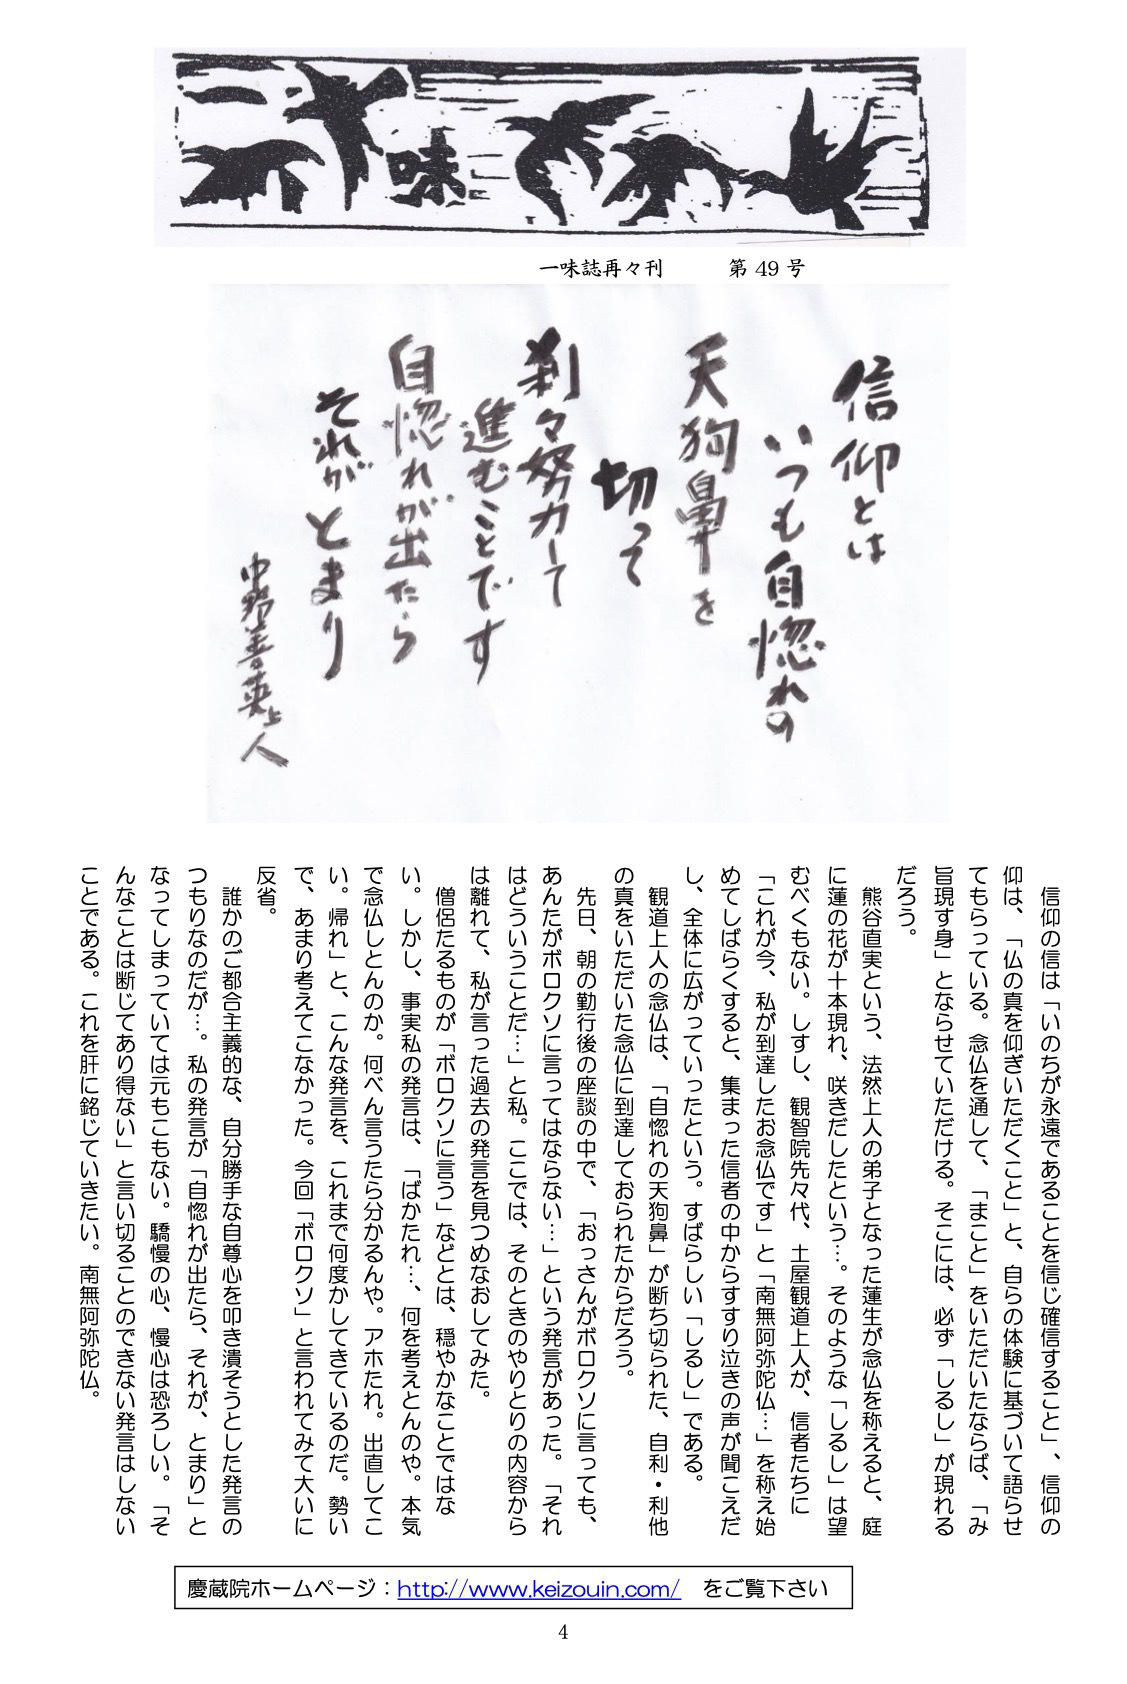 一味
一味誌再々刊　　　第 49 号
信仰とは
いつも自惚れの
天狗鼻を
切って
刹々努力して
進むことです
自惚れが出たら
それがとまり
中野善英上人
　信仰の信は「いのちが永遠であることを信じ確信すること」、信仰の
仰は、「仏の真を仰ぎいただくこと」と、自らの体験に基づいて語らせ
てもらっている。念仏を通して、「まこと」をいただいたならば、「み
旨現す身」とならせていただける。そこには、必ず「しるし」が現れる
だろう。
　熊谷直実という、法然上人の弟子となった蓮生が念仏を称えると、庭
に蓮の花が十本現れ、咲きだしたという…。そのような「しるし」は望
むべくもない。しすし、観智院先々代、土屋観道上人が、信者たちに
「これが今、私が到達したお念仏です」と「南無阿弥陀仏…」を称え始
めてしばらくすると、集まった信者の中からすすり泣きの声が聞こえだ
し、全体に広がっていったという。すばらしい「しるし」である。
　観道上人の念仏は、「自惚れの天狗鼻」が断ち切られた、自利・利他
の真をいただいた念仏に到達しておられたからだろう。
　先日、朝の勤行後の座談の中で、「おっさんがボロクソに言っても、
あんたがボロクソに言ってはならない…」という発言があった。「それ
はどういうことだ…」と私。ここでは、そのときのやりとりの内容から
は離れて、私が言った過去の発言を見つめなおしてみた。
　僧侶たるものが「ボロクソに言う」などとは、穏やかなことではな
い。しかし、事実私の発言は、「ばかたれ…、何を考えとんのや。本気
で念仏しとんのか。何べん言うたら分かるんや。アホたれ。出直してこ
い。帰れ」と、こんな発言を、これまで何度かしてきているのだ。勢い
で、あまり考えてこなかった。今回「ボロクソ」と言われてみて大いに
反省。
　誰かのご都合主義的な、自分勝手な自尊心を叩き潰そうとした発言の
つもりなのだが…。私の発言が「自惚れが出たら、それが、とまり」と
なってしまっていては元もこもない。驕慢の心、慢心は恐ろしい。「そ
んなことは断じてあり得ない」と言い切ることのできない発言はしない
ことである。これを肝に銘じていきたい。南無阿弥陀仏。
慶蔵院ホームページ：http://www.keizouin.com/　をご覧下さい
4